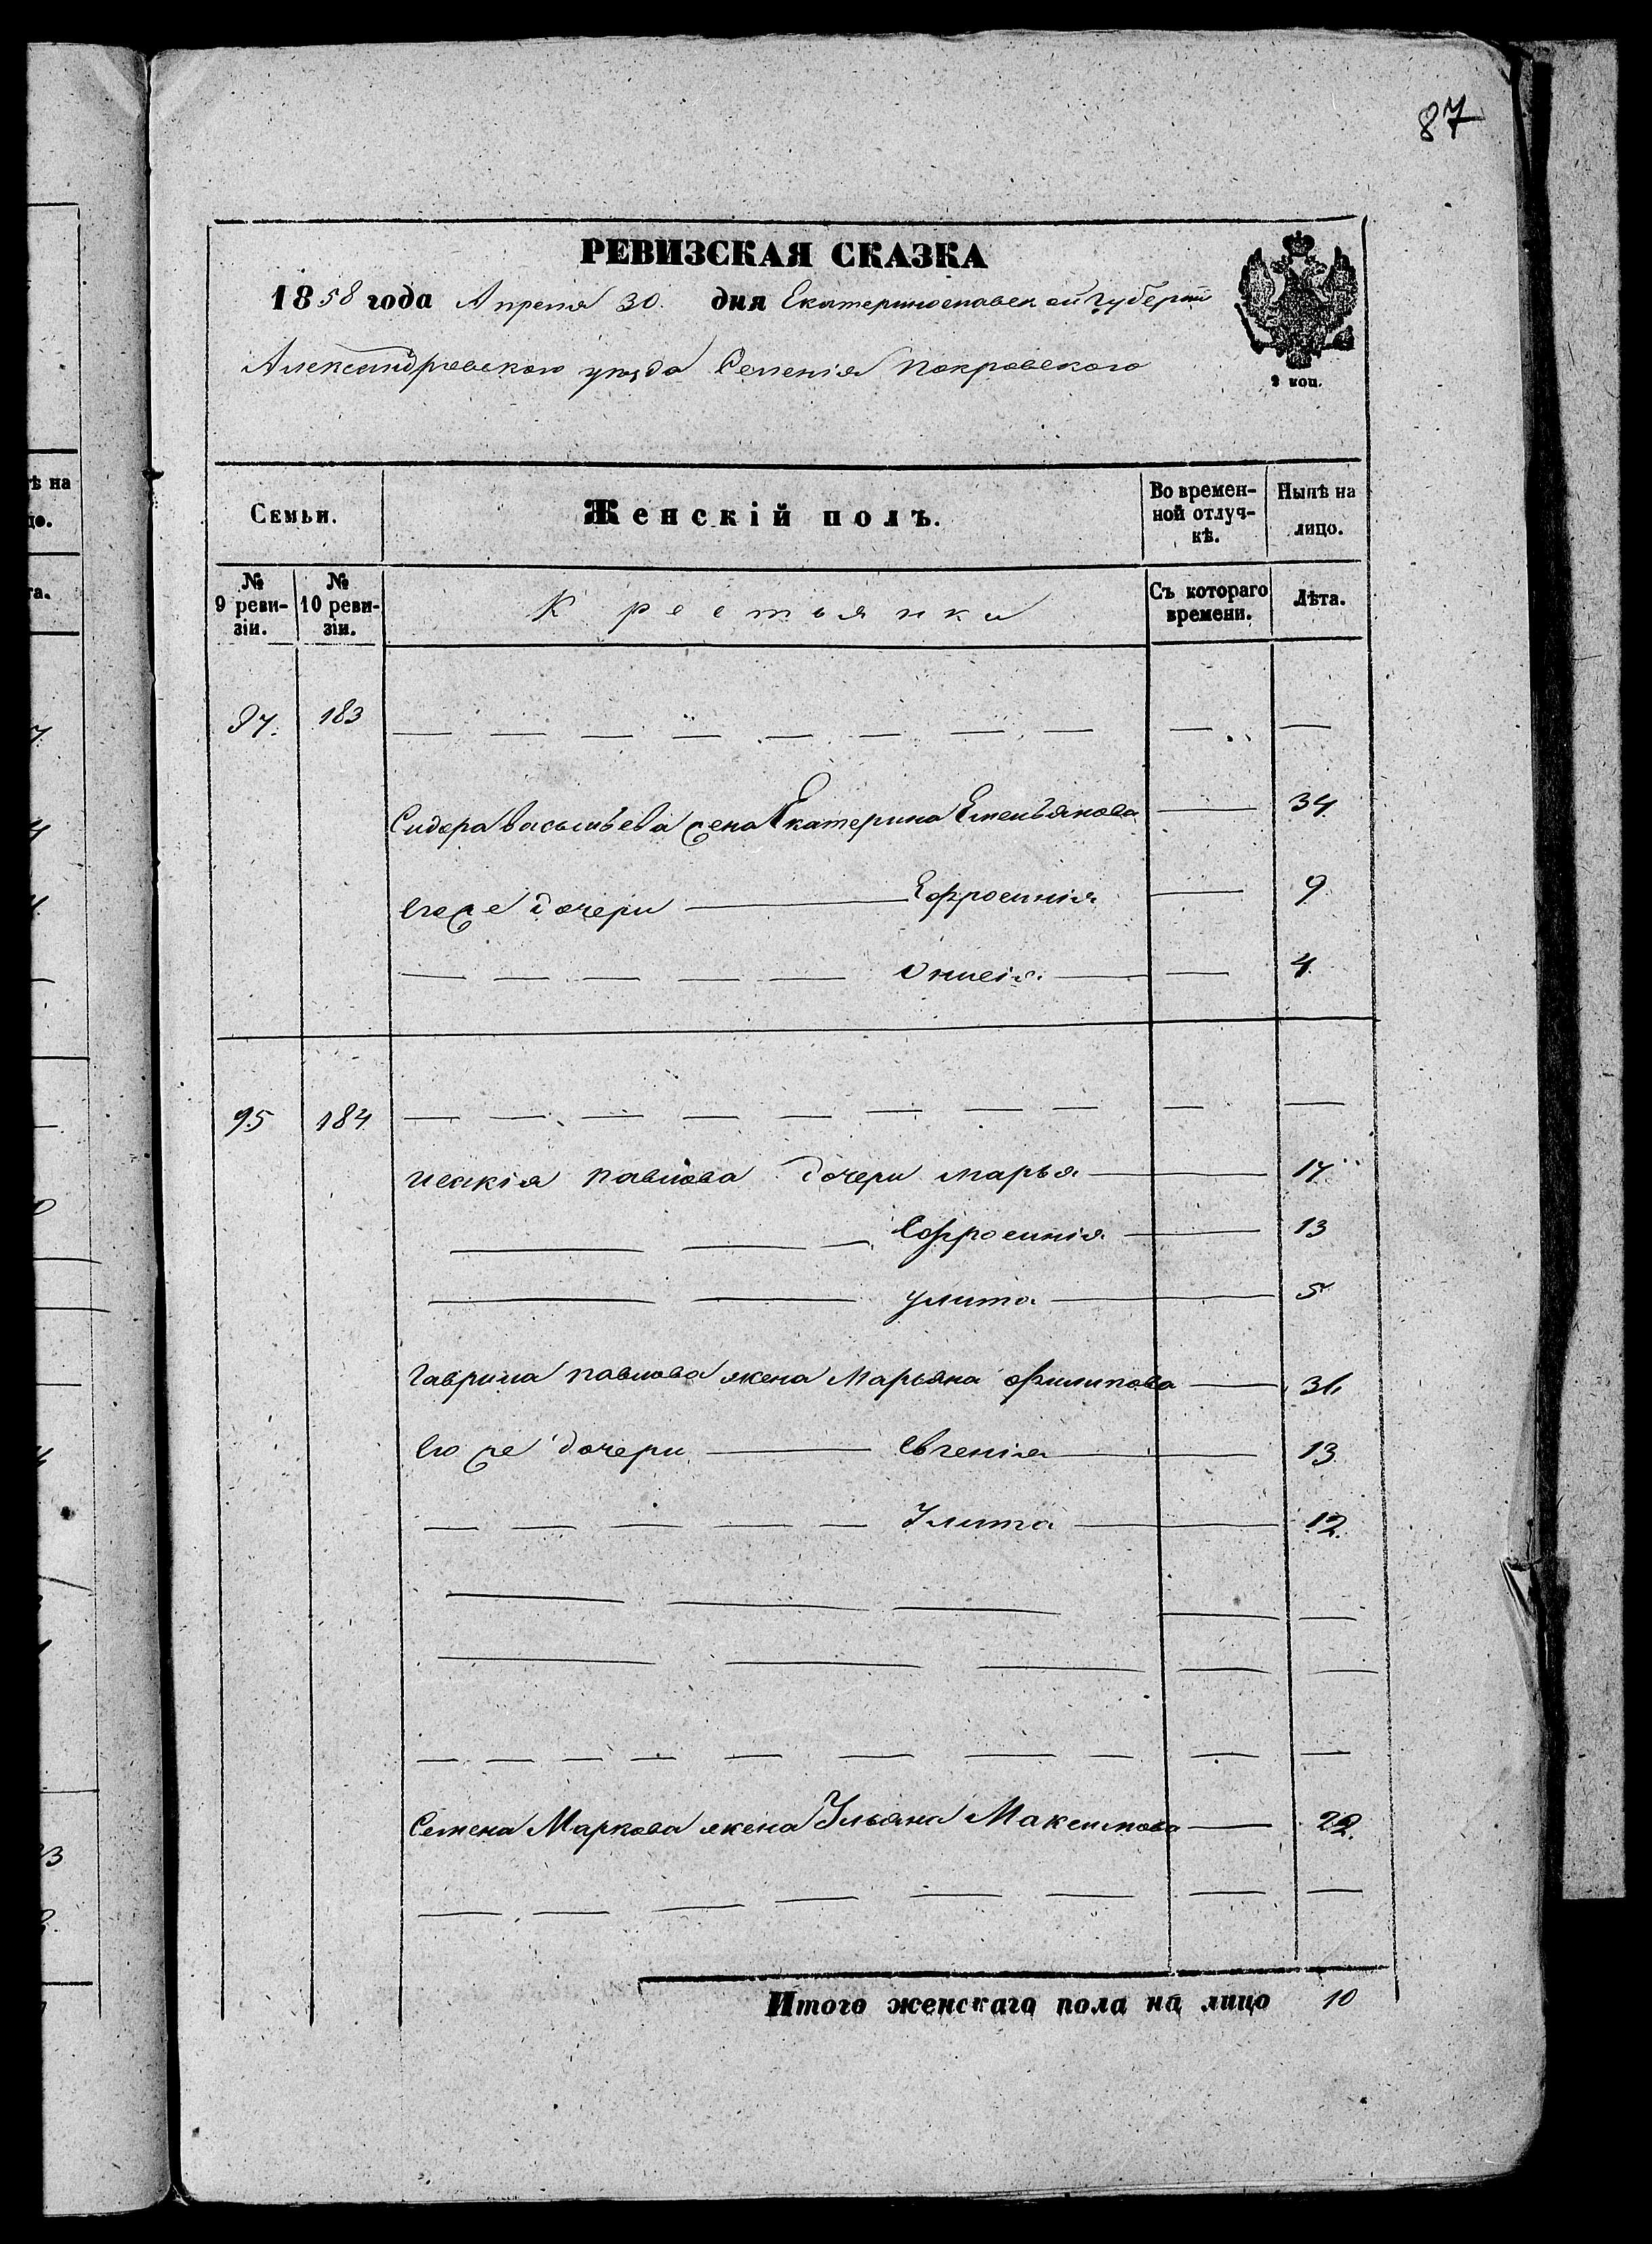 87
РЕВИЗСКАЯ СКАЗКА
1858 года Апреля 30. дня Екатеринославской губерніи
Александровского уезда Селенія Покровского
2 коп.
Семьи.
Женскій полъ.
Во времен-
ной отлуч-
кѣ.
Нынѣ на
лицо.
№
9 реви-
зіи.
№
10 реви-
зіи.
Крестьянки
Съ котораго
времени.
Лѣта.
183
Сидора Васильева жена Екатерина Емельянова 34
Его же дочери Ефросинія 9
Онисія 4
95 184
Исакія Павлова дочери Марья 17
Ефросинія 13
Улита 5
Гаврила Павлова жена Марьяна Филипова
Его же дочери Евгенія 13
Улита 12.
Семена Маркова жена Ульяна Максимова 22.
Итого женскаго пола на лицо 10
ѣ на
цо.
та.